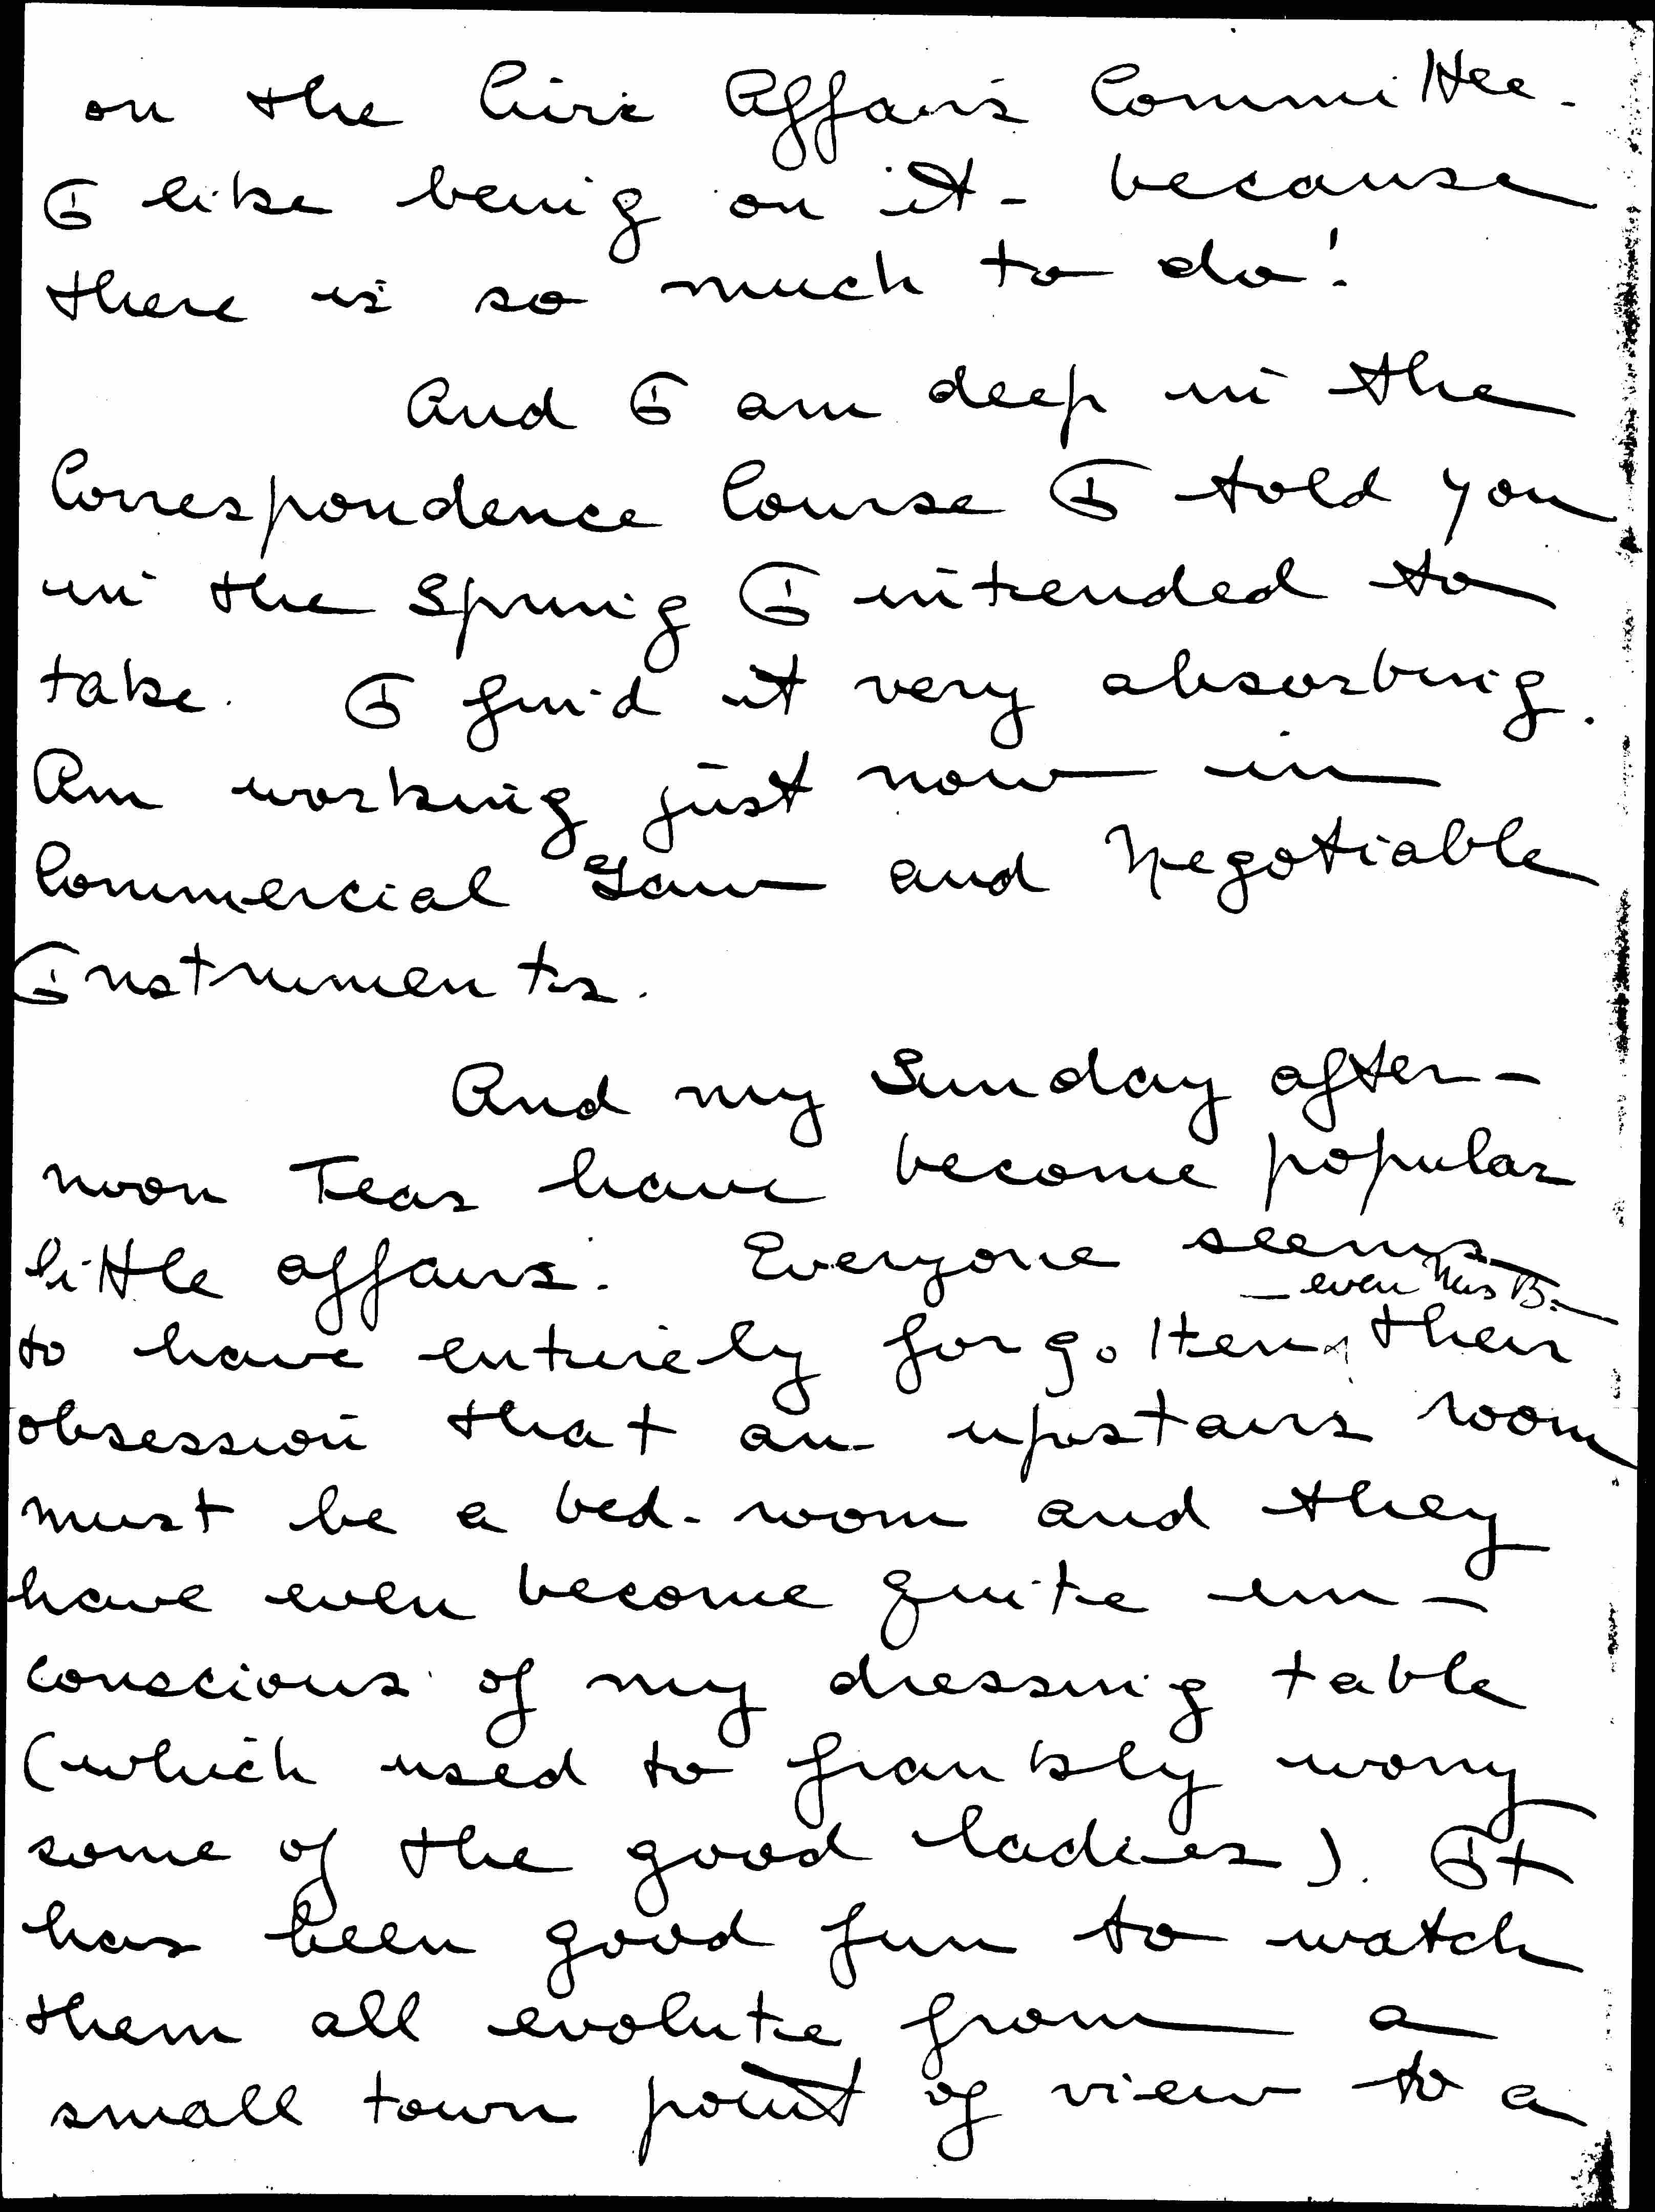 on the Civic Affairs Committee.
I like being on it - because
there is so much to do!
And I am deep in the
Correspondence Course I told you
in the Spring I intended to
take. I find it very absorbing.
Am working just now in
Commercial Law and Negotiable
Instruments.
And my Sunday after-
noon Teas have become popular
little affairs. Everyone seems
— even Mrs B. —
to have entirely forgotten ^ their
obsession that an upstairs room
must be a bed-room and they
have even become quite un-
conscious of my dressing table
(which used to frankly worry
some of the good ladies). It
has been good fun to watch
them all evolute from a
small town point of view to a